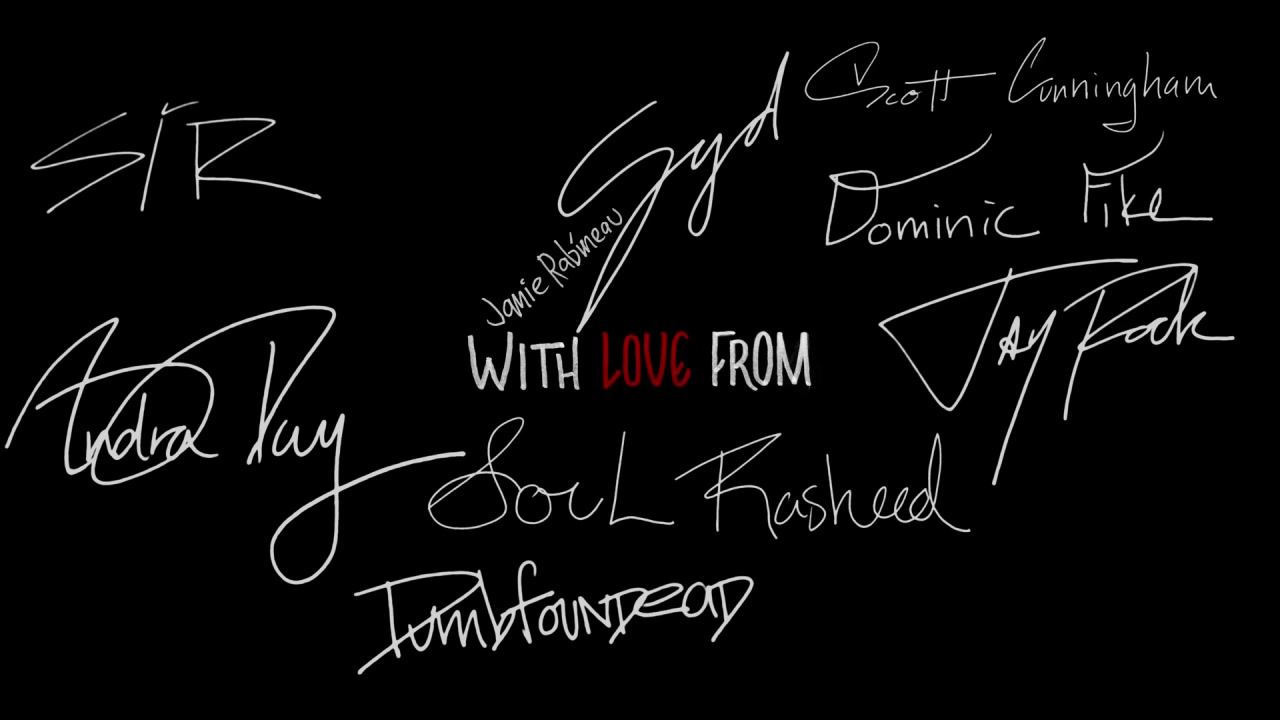 SiR
Gyd
Scott Cunningham
Dominic Fike
Jamie Rabineau
Jay Rock
WITH LOVE FROM
Andra Day
Soul Rasheed
Dumbfoundead